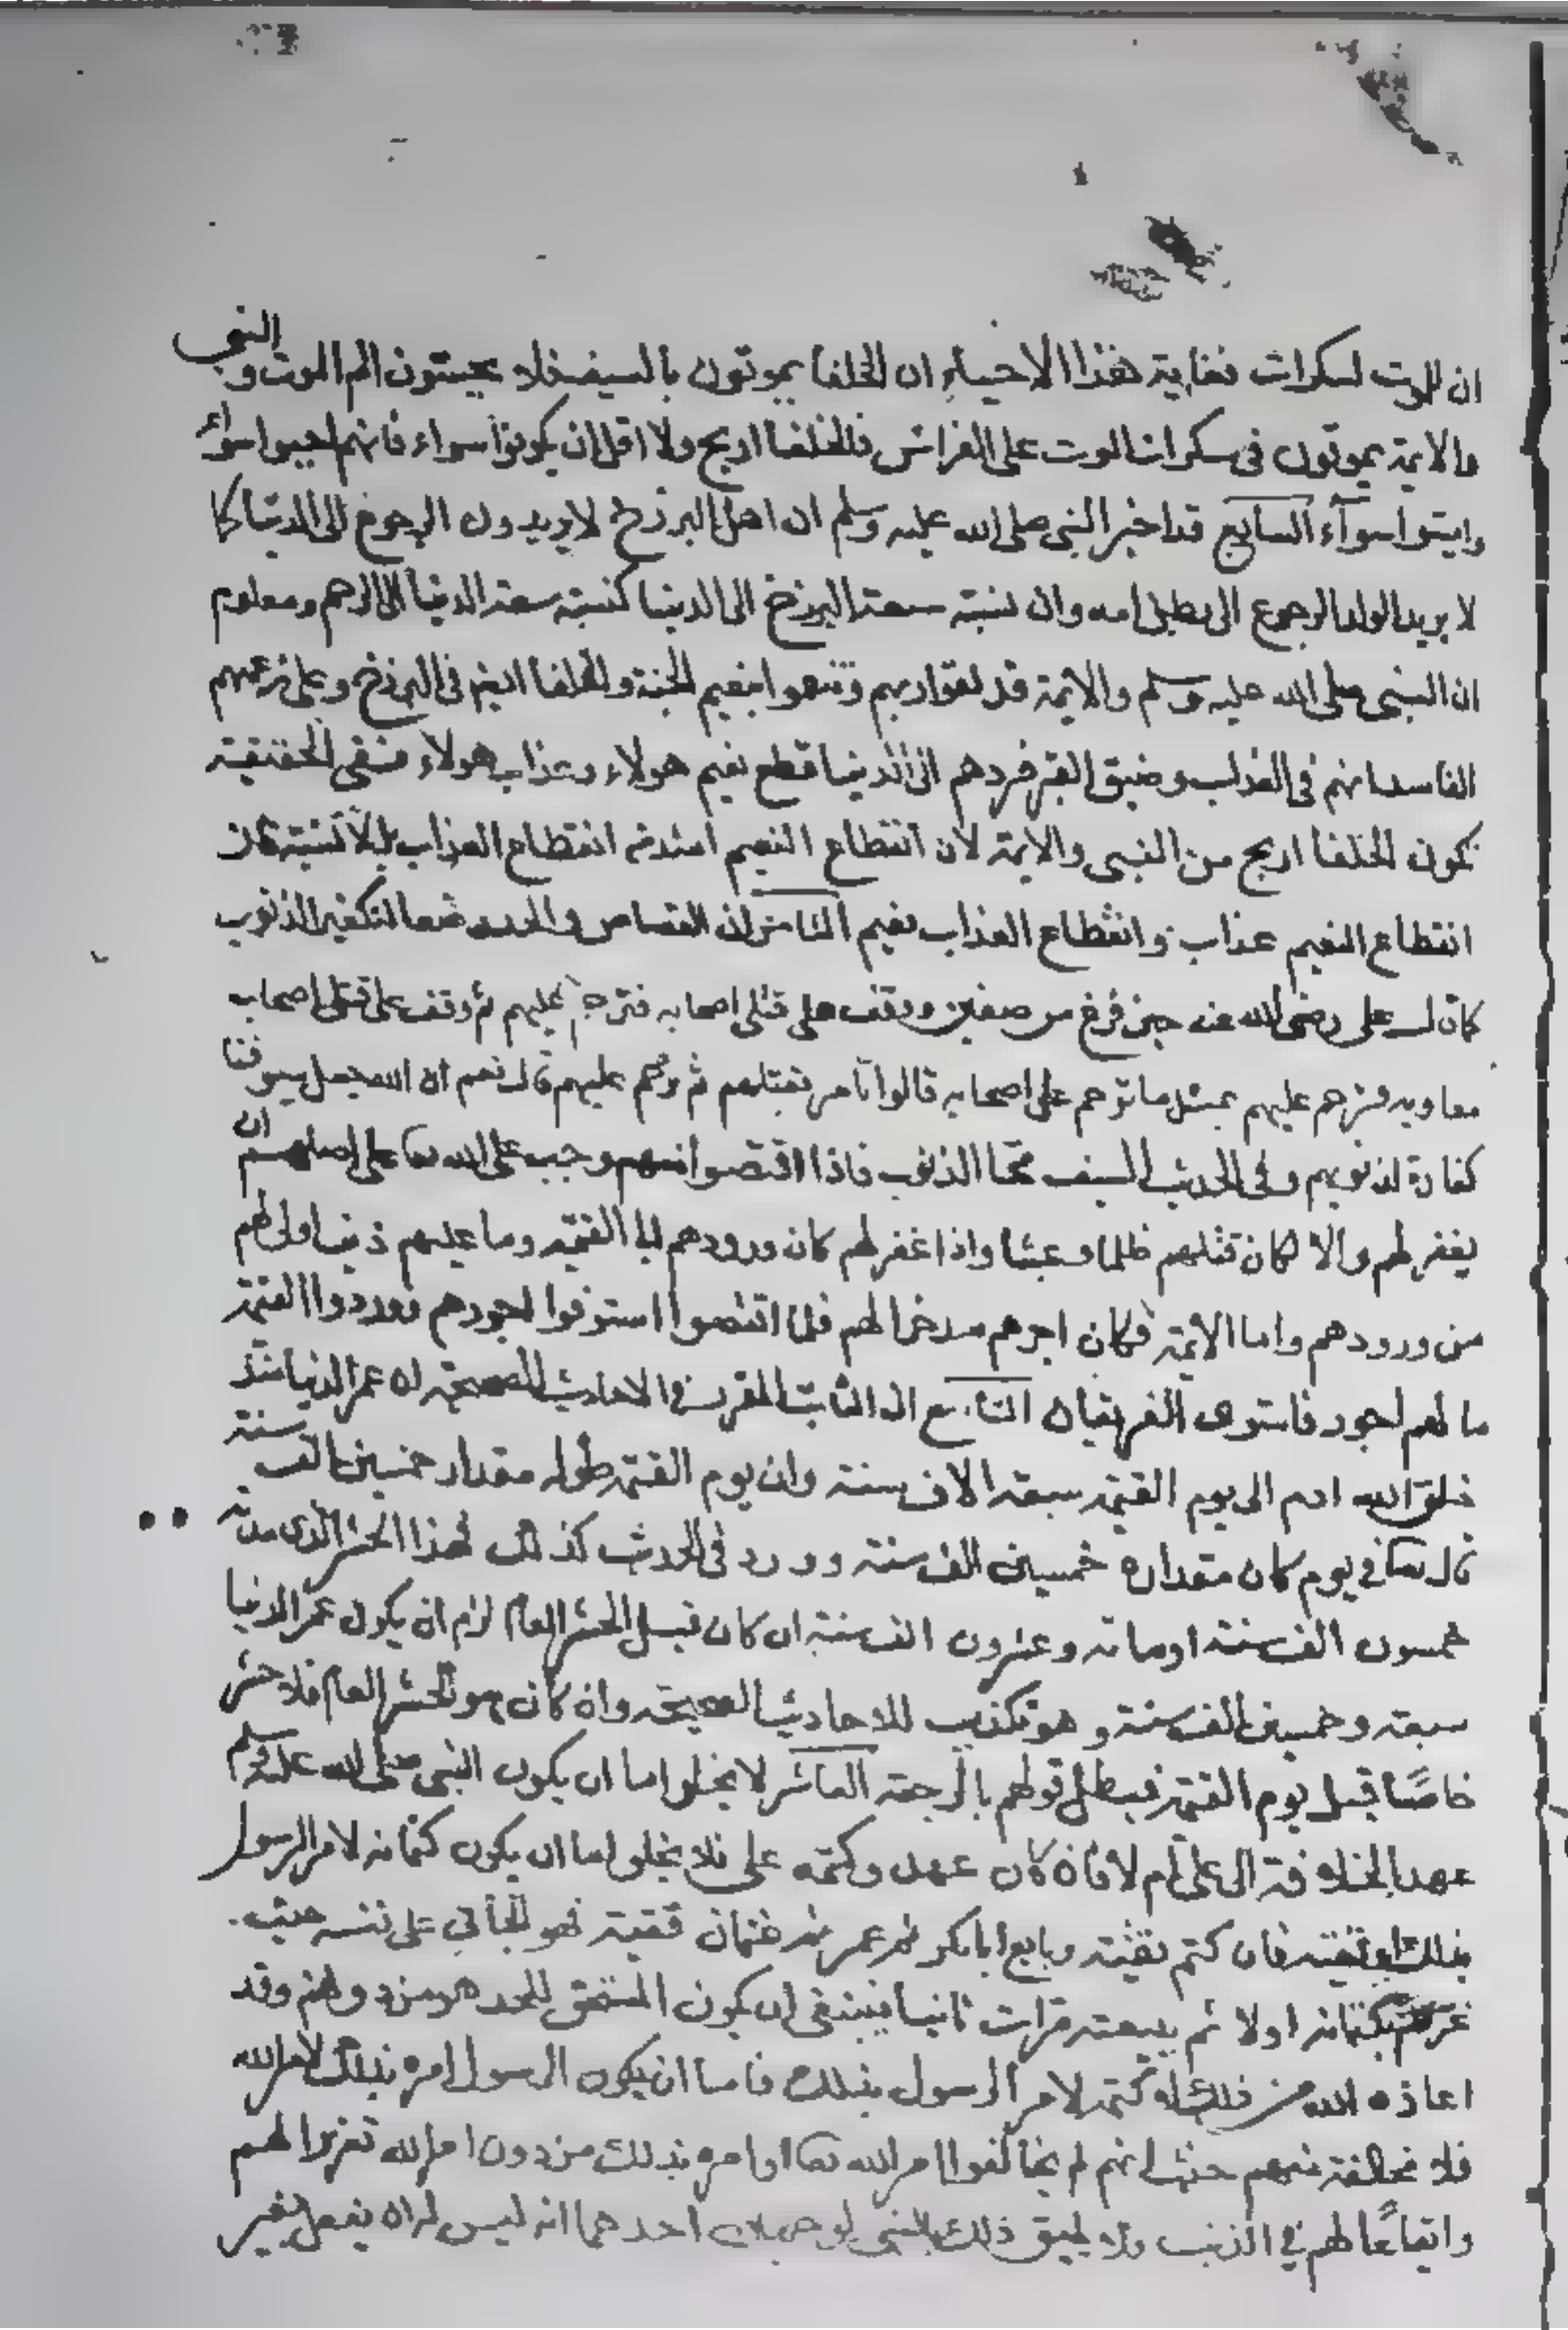 ان للموت لسكرات فغاية هذا الاحياء ان الخلفا يموتون بالسيف فلا يحسون الم الموت والنبي
والايمة يموتون في سكرات الموت على الفراش فالخلفا اربح ولا اقل ان يكونوا سواء فانهم احيوا سواء
واميتوا سوآء السابع قد اخبر النبي صلى الله عليه وسلم ان اهل البرزخ لا يريدون الرجوع الى الدنيا كما
لا يريد الولد الرجوع الى بطن امه وان نسبة سعة البرزخ الى الدنيا كنسبة سعة الدنيا الى الرحم ومعلوم
ان النبي صلى الله عليه وسلم والايمة قد لقوا ربهم وتنعموا بنعيم الجنة والخلفا ايضا في البرزخ وعلى زعمهم
الفاسد انهم في العذاب وضيق القبر فردهم الى الدنيا قطع نعيم هولاء وعذاب هولاء ففي الحقيقة
يكون الخلفا اربح من النبي والايمة لان انقطاع النعيم اشد من انقطاع العذاب بل لا نسبة لان
انقطاع النعيم عذاب وانقطاع العذاب نعيم الثامن ان القصاص والحدود شرعا لتكفير الذنوب
كما قال على رضى الله عنه حين فرغ من صفين ووقف على قتلى اصحابه فترحم عليهم ثم وقف على قتلى اصحاب
معاويه فترحم عليهم بمثل ما ترحم على اصحابه قالوا تامر بقتلهم ثم ترحم عليهم قال نعم ان الله جعل سيوفنا
كفارة لذنوبهم وفي الحديث السيف محا الذنوب فاذا اقتصوا منهم وجب على الله تعا على اصلهم ان
يغفر لهم والا لكان قتلهم ظلما وعبثا واذا غفر لهم كان ورودهم الى القيمة وما عليهم ذنب اولى لهم
من ورودهم واما الايمة فكان اجرهم مدخرا لهم فلما اقتصوا استوفوا اجورهم فوردوا القيمة
ما لهم اجور فاستوى الفريقان التاسع ان الثابت المقرر في الاحاديث الصحيحة ان عمر الدنيا منذ
خلق الله ادم الى يوم القيمة سبعة الاف سنة وان يوم القيمة طوله مقدار خمسين الف سنة
قال تعا في يوم كان مقداره خمسين الف سنة وورد في الحديث كذلك فهذا الحشر الذي مدته
خمسون الف سنة او ماتة وعشرون الف سنة ان كان قبل الحشر العام لزم ان يكون عمر الدنيا
سبعة وخمسين الف سنة وهو تكذيب للاحاديث الصحيحة وان كان هو الحشر العام فلا حشر
خاصًا قبل يوم القيمة فبطل قولهم بالرجعة العاشر لا يخلوا اما ان يكون النبي صلى الله عليه وسلم
عهد بالخلافة الى على ام لا فان كان عهد وكتمه على فلا يخلو اما ان يكون كتمانه لامر الرسول
بذلك او تقية فان كتم تقية وبايع ابا بكر ثم عمر ثم عثمان تقية فهو الجاني على نفسه حيث
غرهم بكتمانه اولا ثم ببيعته مرات ثانيا فينبغي ان يكون المستحق للحد هو من دونهم وقد
اعاذه الله من ذلك وان كتمه لامر الرسول بذلك فاما ان يكون الرسول امره بذلك لامر الله
فلا مخالفة منهم حيث انهم لم يخالفوا امر الله تعا او امره بذلك من دون امر الله تغريرا لهم
وايقاعًا لهم في الذنب ولا يليق ذلك بالنبي لوجهين احدهما انه ليس له ان يفعل بغير